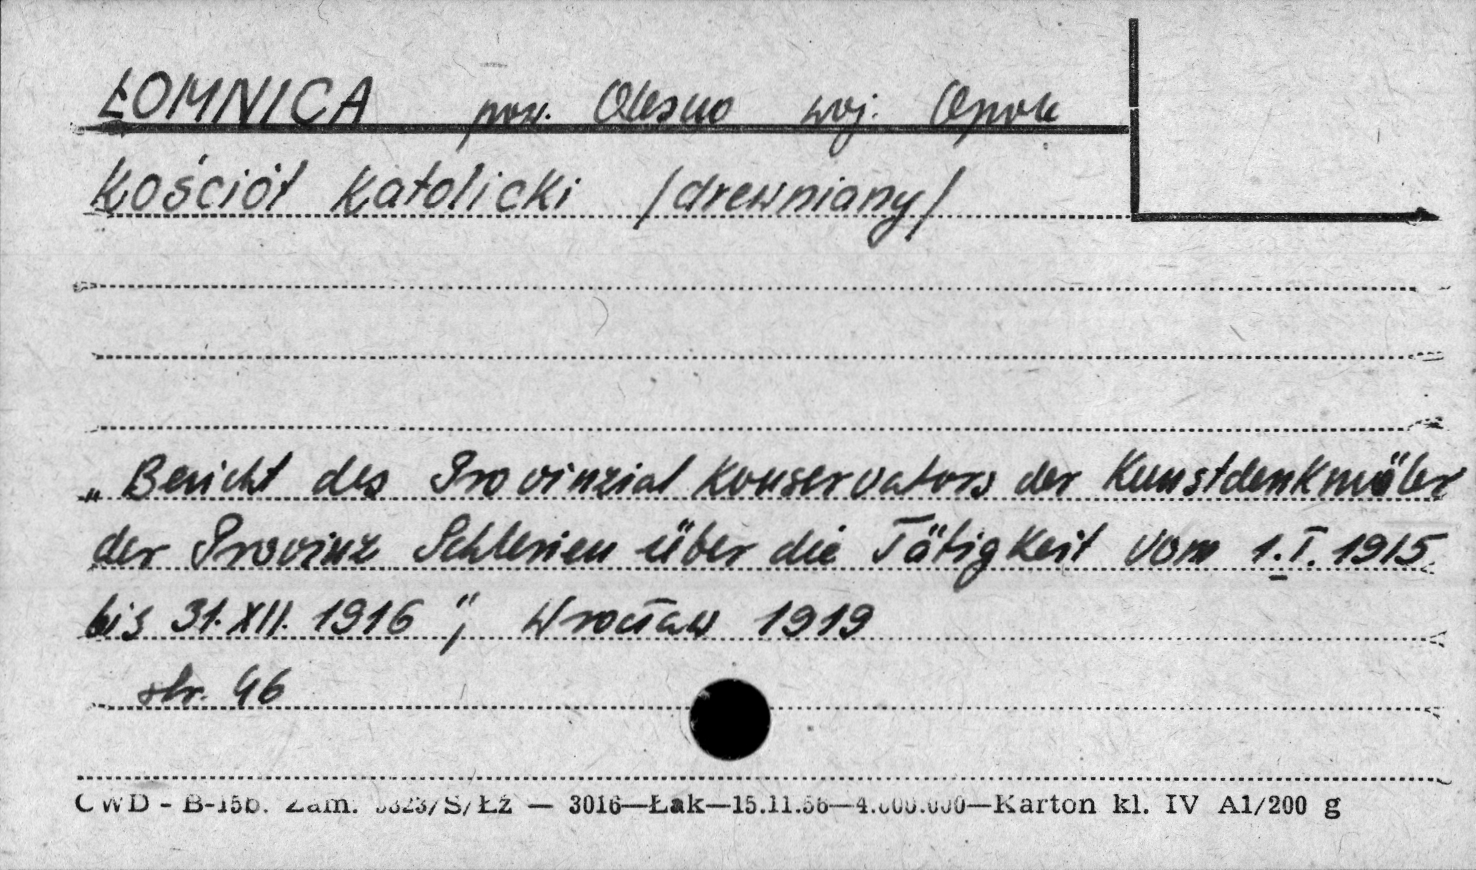 ŁOMNICA pow. Olesno woj. Opole
Kościół Katolicki /drewniany/
„Bericht des Provinzial Konservators der Kunstdenkmäler
der Provinz Schlesien über die Tätigkeit vom 1.I.1915
bis 31.XII.1916", Wrocław 1919
str. 46
CWD - B-15b. Zam. S/Łż — 3016—Łak—15.11.56—4.000.000—Karton kl. IV A1/200 g